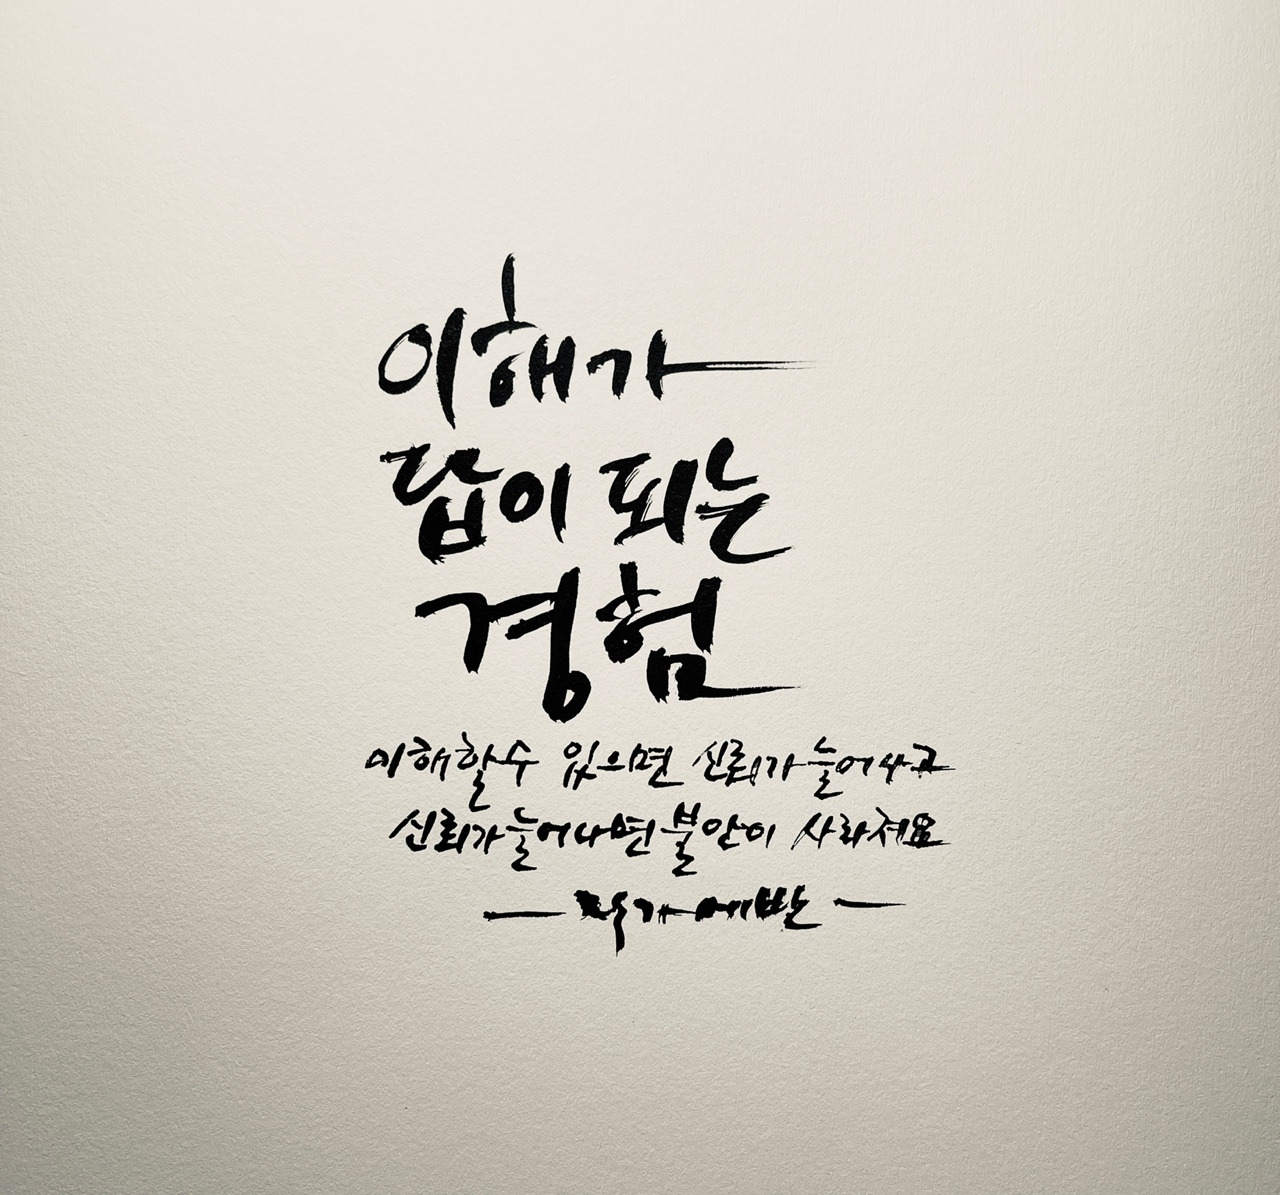 이해가
답이 되는
경험
이해할 수 있으면 신뢰가 늘어나고
신뢰가 늘어나면 불안이 사라져요